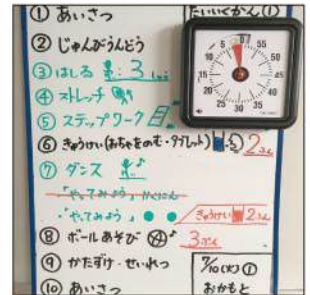 ① あいさつ
たいいくかん①
② じゅんびうんどう
③ はしる 3しゅう
④ ストレッチ
⑤ ステップワーク
⑥ きゅうけい(おちゃをのむ・タブレット) 2ふん
⑦ ダンス
「やってみよう」かくにん
・「やってみよう」
きゅうけい 2ふん
⑧ ボールあそび 3ぷん
⑨ かたずけ・せいれつ
⑩ あいさつ
7/10(火)①
おかもと
0 55 50 45 40 35 30 25 20 15 10 5